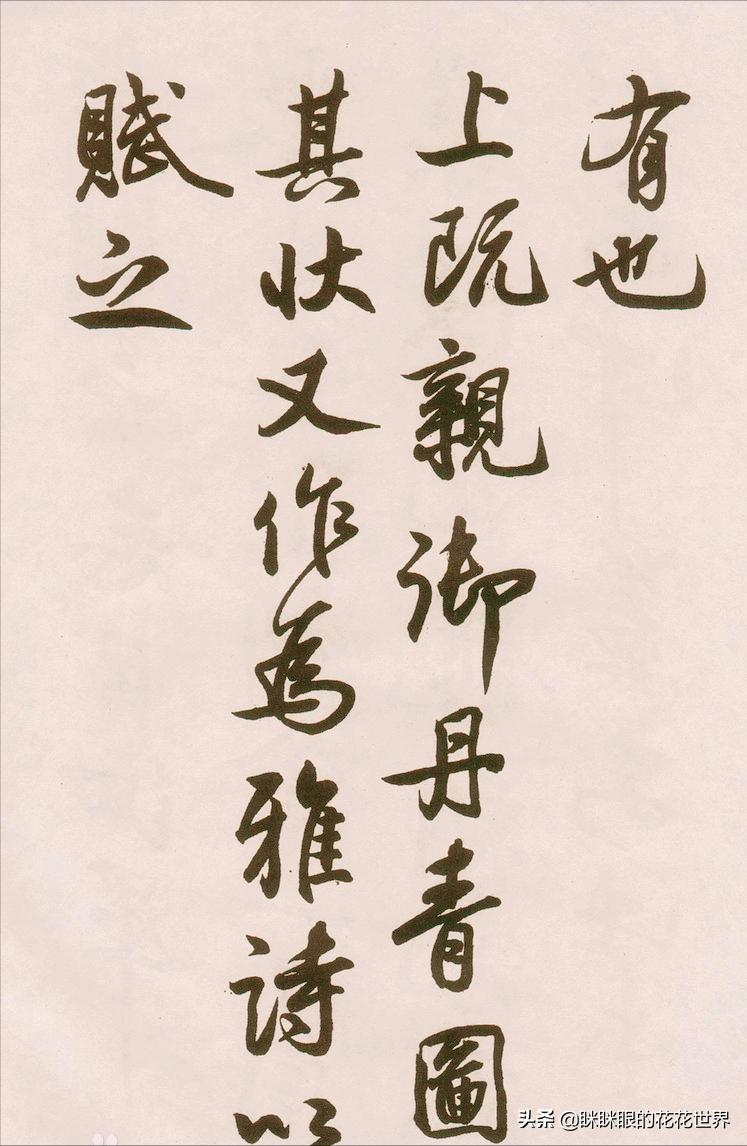 有也
上既親御丹青圖
其狀又作為雅詩以
賦之
头条 @眯眯眼的花花世界